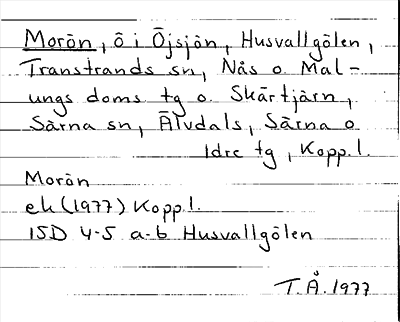 Morön, ö i Öjsjön, Husvallgölen,
Transtrands sn, Nås o Mal-
ungs doms tg o. Skärtjärn,
Särna sn, Älvdals, Särna o
Idre tg, Kopp.l.
Morön
ek (1977) Kopp.l.
15D 4-5 a-b Husvallgölen
T.Å. 1977